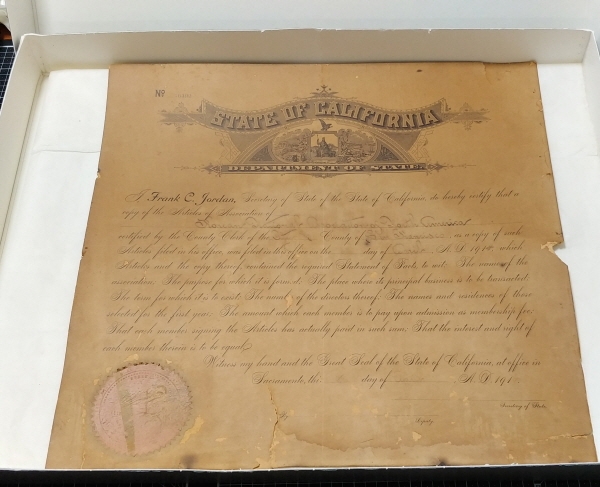 No
STATE OF CALIFORNIA
DEPARTMENT OF STATE
I Frank C. Jordan, Secretary of State of the State of California, do hereby certify that a
copy of the Articles of Association of
certified by the County Clerk of the County of as a copy of such
Articles filed in his office, was filed in this office on the day of A.D. 191 , which
Articles and the copy thereof contained the required Statement of Facts, to wit: The name of the
association. The purpose for which it is formed. The place where its principal business is to be transacted.
The term for which it is to exist. The number of the directors thereof. The names and residences of those
selected for the first year. The amount which each member is to pay upon admission as membership fee.
That each member signing the Articles has actually paid in such sum. That the interest and right of
each member therein is to be equal.
Witness my hand and the Great Seal of the State of California, at office in
Sacramento, this day of A.D. 191
Secretary of State
By
Deputy